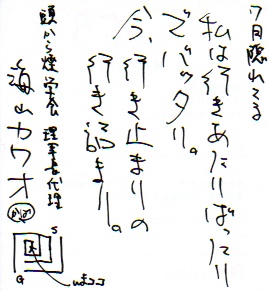 7日隠れてる
私は行きあたりばったり
でバッタリ。
今、行き止まりの
行き詰り。
頭から煙 栄養 理事長代理
海山カワオ
S
G
いまココ